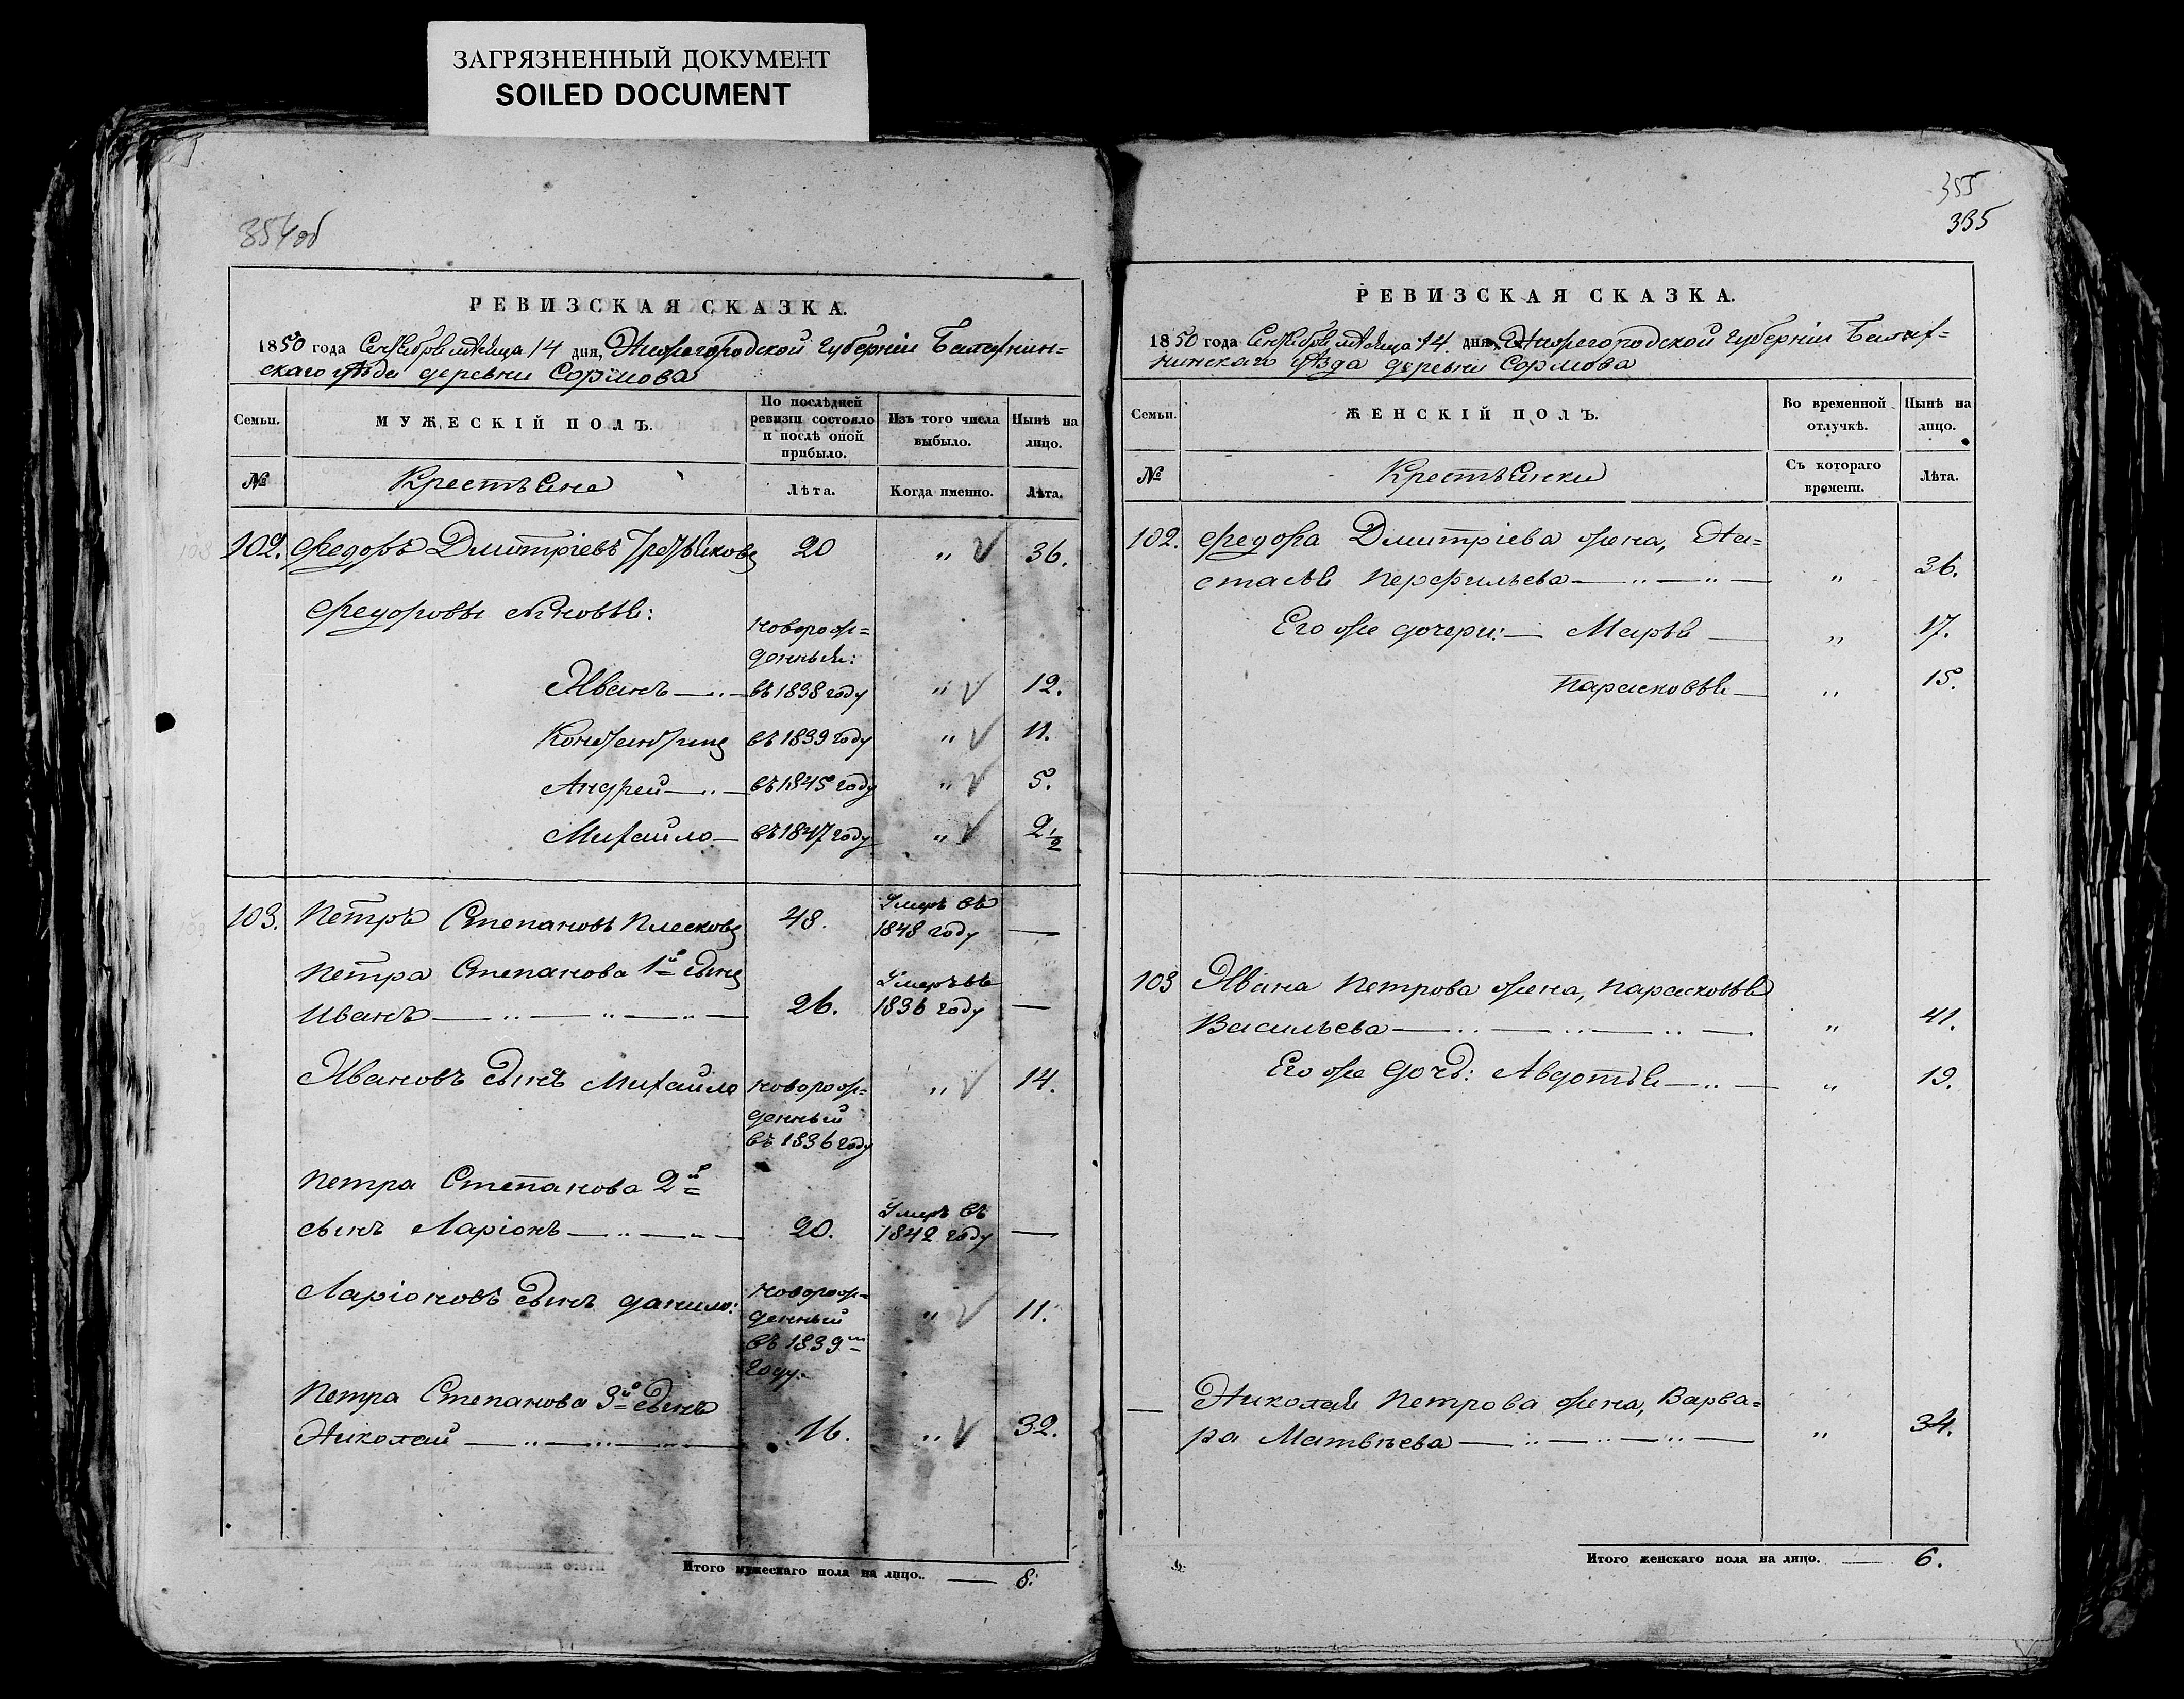 ЗАГРЯЗНЕННЫЙ ДОКУМЕНТ
SOILED DOCUMENT
354об
РЕВИЗСКАЯ СКАЗКА.
1850 года Сентября мѣсяца 14 дня, Нижегородской губерніи Балахнин=
скаго уѣзда деревни Сормова
Семьи.
МУЖЕСКІЙ ПОЛЪ.
По послѣдней ревизіи состояло и послѣ оной прибыло.
Изъ того числа выбыло.
Нынѣ на лицо.
№
Крестьяне
Лѣта.
Когда именно.
Лѣта.
102. Федоръ Дмитріевъ 20 „ 36.
Федоровы сыновья:
новорож=
денные:
Иванъ въ 1838 году „ 12.
Константинъ въ 1839 году „ 11.
Андрей въ 1845 году „ 5.
Михайло въ 1847 году „ 2 1/2
103. Петръ Степановъ Плесковъ 48. Умеръ въ
1848 году —
Петра Степанова 1й сынъ
Иванъ 26. Умеръ въ
1836 году —
Ивановъ сынъ Михайло новорож=
денный
въ 1836 году „ 14.
Петра Степанова 2й
сынъ Ларіонъ 20. Умеръ въ
1842 году —
Ларіоновъ сынъ Данило: новорож=
денный
въ 1839м
году. „ 11.
Петра Степанова 3й сынъ
Николай 16. „ 32.
Итого мужескаго пола на лицо. — 8.
355
335
РЕВИЗСКАЯ СКАЗКА.
1850 года Сентября мѣсяца 14 дня, Нижегородской губерніи Балах=
нинскаго уѣзда деревни Сормова
Семьи.
ЖЕНСКІЙ ПОЛЪ.
Во временной отлучкѣ.
Нынѣ на лицо.
№
Крестьянки
Съ котораго времени.
Лѣта.
102. Федора Дмитріева жена, На=
стасья Перфильева „ 36.
Его же дочери: — Марья — „ 17.
Парасковья — „ 15.
103 Ивана Петрова жена, Парасковья
Васильева „ 41.
Его же дочь: Авдотья „ 19.
— Николая Петрова жена, Варва=
ра Матвѣева „ 34.
Итого женскаго пола на лицо. — 6.